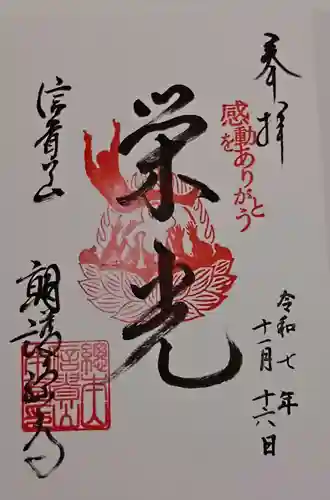 奉拝
感動を
ありがとう
栄光
令和七年
十一月十六日
信貴山
朝護孫子寺